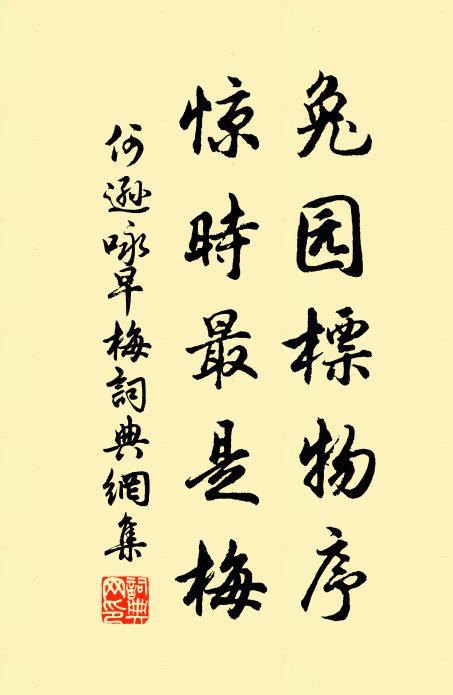 兔园標物序
惊時最是梅
何遜咏早梅詞典網集
詞典網印